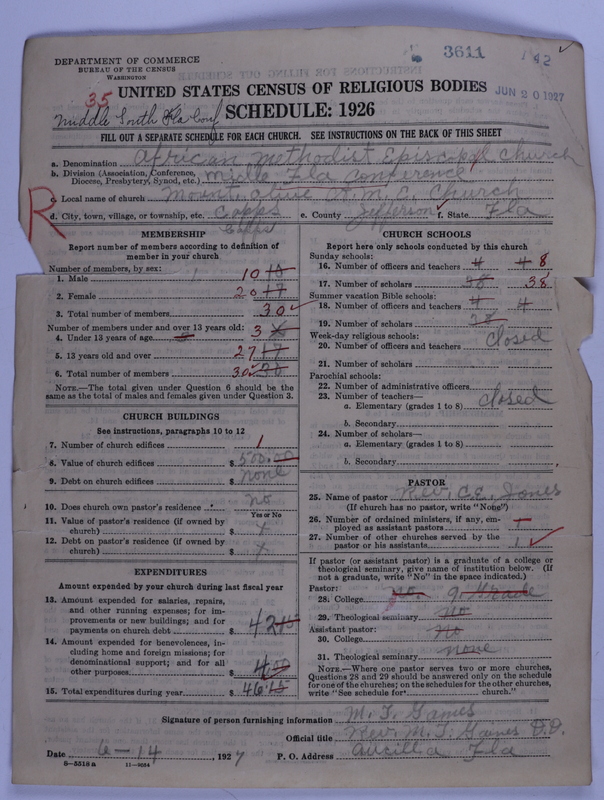 3611 142
DEPARTMENT OF COMMERCE
BUREAU OF THE CENSUS
WASHINGTON
UNITED STATES CENSUS OF RELIGIOUS BODIES
JUN 20 1927
35
Middle South Fla Conf
SCHEDULE: 1926
FILL OUT A SEPARATE SCHEDULE FOR EACH CHURCH. SEE INSTRUCTIONS ON THE BACK OF THIS SHEET
a. Denomination African Methodist Episcopal Church
b. Division (Association, Conference, Diocese, Presbytery, Synod, etc.) Middle Fla Conference
R
c. Local name of church Mount Olive A. M. E. Church
d. City, town, village, or township, etc. Capps e. County Jefferson f. State Fla
Capps
MEMBERSHIP
Report number of members according to definition of
member in your church
Number of members, by sex:
1. Male 10
2. Female 20 17
3. Total number of members 30
Number of members under and over 13 years old:
4. Under 13 years of age 3
5. 13 years old and over 27 17
6. Total number of members 30
NOTE.—The total given under Question 6 should be the
same as the total of males and females given under Question 3.
CHURCH BUILDINGS
See instructions, paragraphs 10 to 12
7. Number of church edifices 1
8. Value of church edifices $ 500.00
9. Debt on church edifices $ None
10. Does church own pastor's residence? No
Yes or No
11. Value of pastor's residence (if owned by
church) $ x
12. Debt on pastor's residence (if owned by
church) $ x
EXPENDITURES
Amount expended by your church during last fiscal year
13. Amount expended for salaries, repairs,
and other running expenses; for im-
provements or new buildings; and for
payments on church debt $ 42
14. Amount expended for benevolences, in-
cluding home and foreign missions; for
denominational support; and for all
other purposes $ 4
15. Total expenditures during year $ 46
CHURCH SCHOOLS
Report here only schools conducted by this church
Sunday schools:
16. Number of officers and teachers 4 8
17. Number of scholars 38
Summer vacation Bible schools:
18. Number of officers and teachers 4 4
19. Number of scholars
Week-day religious schools:
20. Number of officers and teachers closed
21. Number of scholars
Parochial schools:
22. Number of administrative officers
23. Number of teachers—
a. Elementary (grades 1 to 8) closed
b. Secondary
24. Number of scholars—
a. Elementary (grades 1 to 8)
b. Secondary
PASTOR
25. Name of pastor Rev. C.E. Jones
(If church has no pastor, write "None")
26. Number of ordained ministers, if any, em-
ployed as assistant pastors —
27. Number of other churches served by the
pastor or his assistants 1
If pastor (or assistant pastor) is a graduate of a college or
theological seminary, give name of institution below. (If
not a graduate, write "No" in the space indicated.)
Pastor:
28. College No. 9. Grade
29. Theological seminary No
Assistant pastor:
30. College No
31. Theological seminary None
NOTE.—Where one pastor serves two or more churches,
Questions 28 and 29 should be answered only on the schedule
for one of the churches; on the schedules for the other churches,
write "See schedule for church."
Signature of person furnishing information M. T. Gaines
Official title Rev. M. T. Gaines D.D.
Date 6-14, 1927 P. O. Address Aucilla Fla
8-5518 a 11-9084